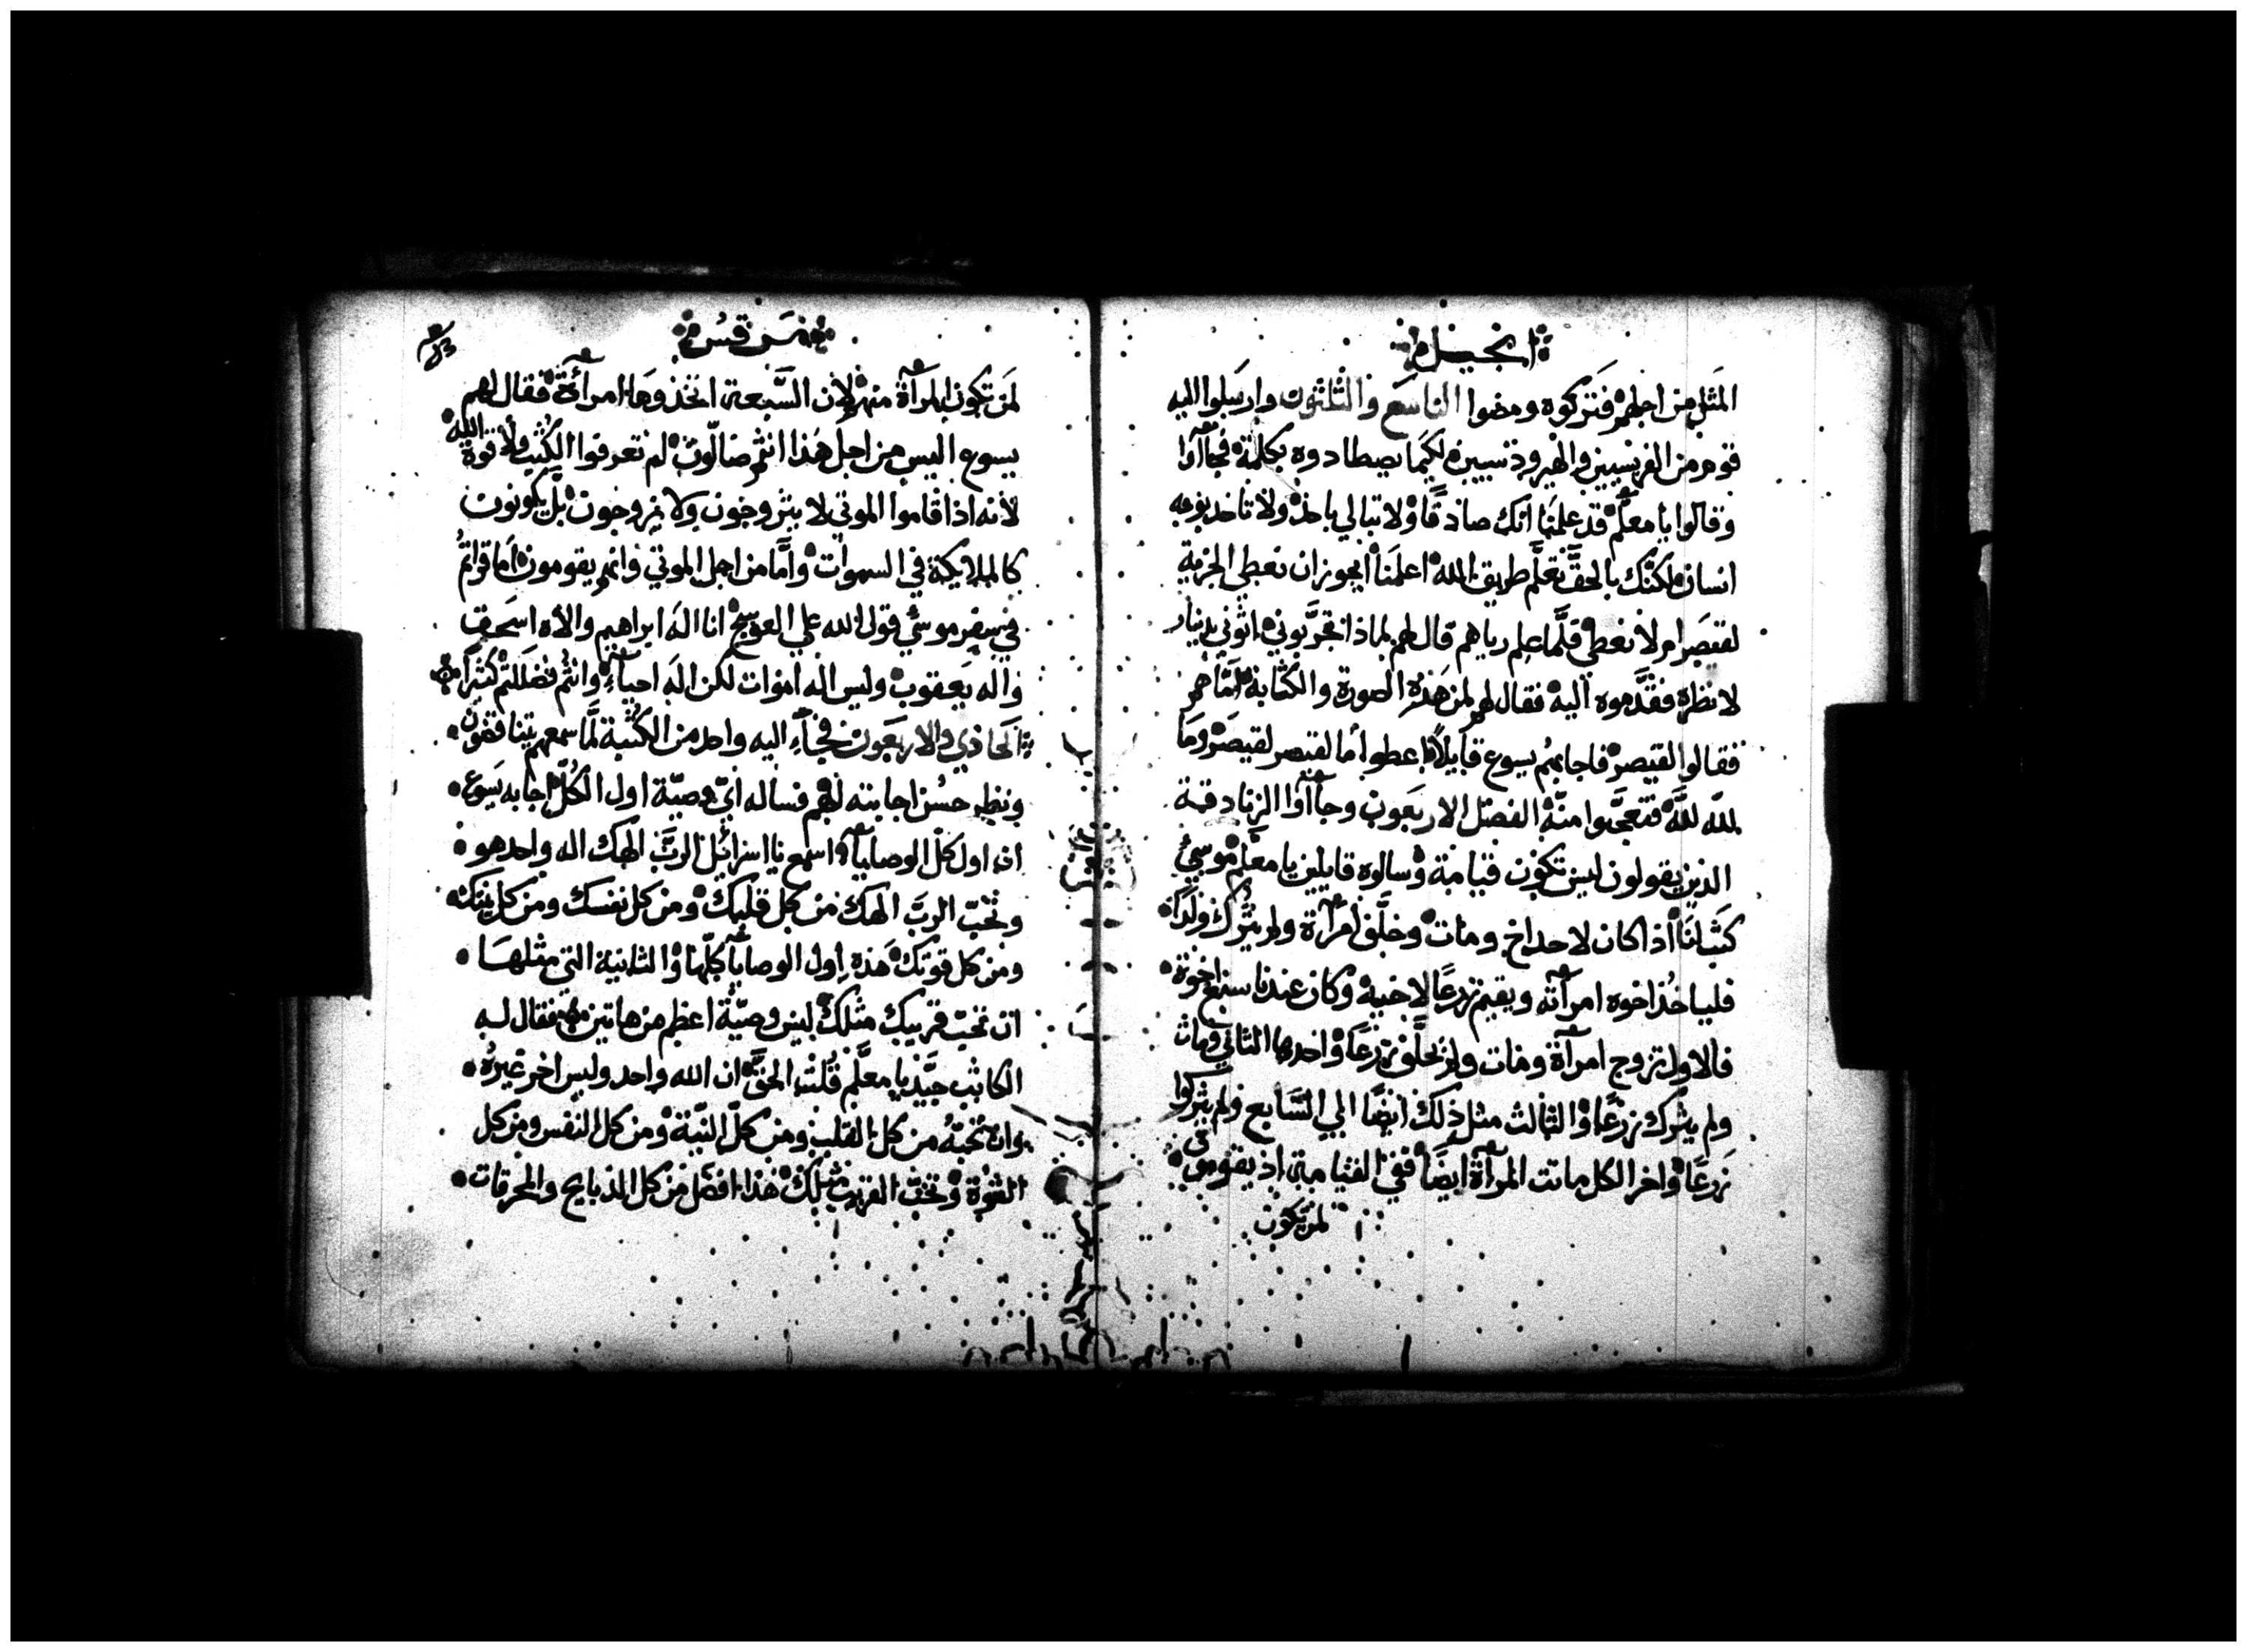 انجيل
المَثل من اجلهم فتركوه ومضوا التاسع والثلثون وارسلوا اليه
قوم من الفريسيين والهيروذسيين لكيما يصطادوه بكلمة فجاآوا
وقالوا يا معلّم قد علمنا انك صادقًا ولا تبالي باحد ولا تاخد بوجه
انسان لكنّك بالحقّ تعلّم طريق الله اعلمنا ايجوز ان نعطي الجزية
لقيصر ام لا نعطي فلمّا علم رياهم قال لهم لماذا تجرّبوني اتوني بدينار
لانظره فقدّموه اليه فقال لهم لمن هذه الصورة والكتابة
فقالوا لقيصر فاجابهم يسوع قايلاً اعطوا ما لقيصر لقيصر وما
لله لله فتعجّبوا منه الفصل الاربعون وجاآوا الزنادقة
الذين يقولون ليس تكون قيامة وسالوه قايلين يا معلّم موسي
كتب لنا اذا كان لاحد اخ ومات وخلّف امرآة ولم يترك ولدًا
فلياخذ اخوه امرآته ويقيم زرعًا لاخيه وكان عندنا سبع اخوة
فالاول تزوج امرآة ومات ولم يخلّف زرعًا واخدها الثاني ومات
ولم يترك زرعًا والثالث مثل ذلك ايضًا الي السّابع ولم يتركوا
زرعًا واخر الكل ماتت المرآة ايضًا ففي القيامة اذ يقومون
لمن تكون
مرقس
لمن تكون المرآة منهم لان السّبعة اتخذوها امرآة فقال لهم
يسوع اليس من اجل هذا انتم ضالّون لم تعرفوا الكتب ولا قوة الله
لانه اذا قاموا الموتي لا يتزوجون ولا يزوجون بل يكونون
كالملايكة في السموات وامّا من اجل الموتي وانهم يقومون اما قراتم
في سفر موسي قول الله علي العوسج انا اله ابراهيم والاه اسحق
واله يعقوب وليس اله اموات لكن اله احياء وانتم فضللتم كثيرًا
الحادي والاربعون فجاء اليه واحد من الكتبة لمّا سمعهم يتنافقون
ونظر حسن اجابته لهم فساله ايّ وصيّة اول الكلّ اجابه يسوع
ان اول كل الوصايا اسمع يا اسرائيل الربّ الهك اله واحد هو
وتحبّ الربّ الهك من كل قلبك ومن كل نفسك ومن كل نيتك
ومن كل قوتك هذه اول الوصايا كلّها والثانية التي مثلها
ان تحبّ قريبك مثلك ليس وصيّة اعظم من هاتين فقال له
الكاتب جيّد يا معلّم قلت الحقّ ان الله واحد وليس اخر غيره
وان تحبّه من كل القلب ومن كلّ النيّة ومن كل النفس ومن كل
القوة وتحبّ القريب مثلك هذا افضل من كل الذبايح والمحرقات